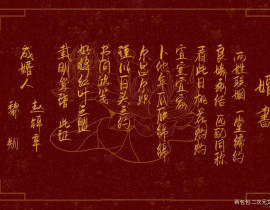 婚书
两姓联姻 一堂缔约
良缘永结 匹配同称
看此日桃花灼灼
宜室宜家
卜他年瓜瓞绵绵
尔昌尔炽
谨以白头之约
书向鸿笺
好将红叶之盟
载明鸳谱 此证
成婚人